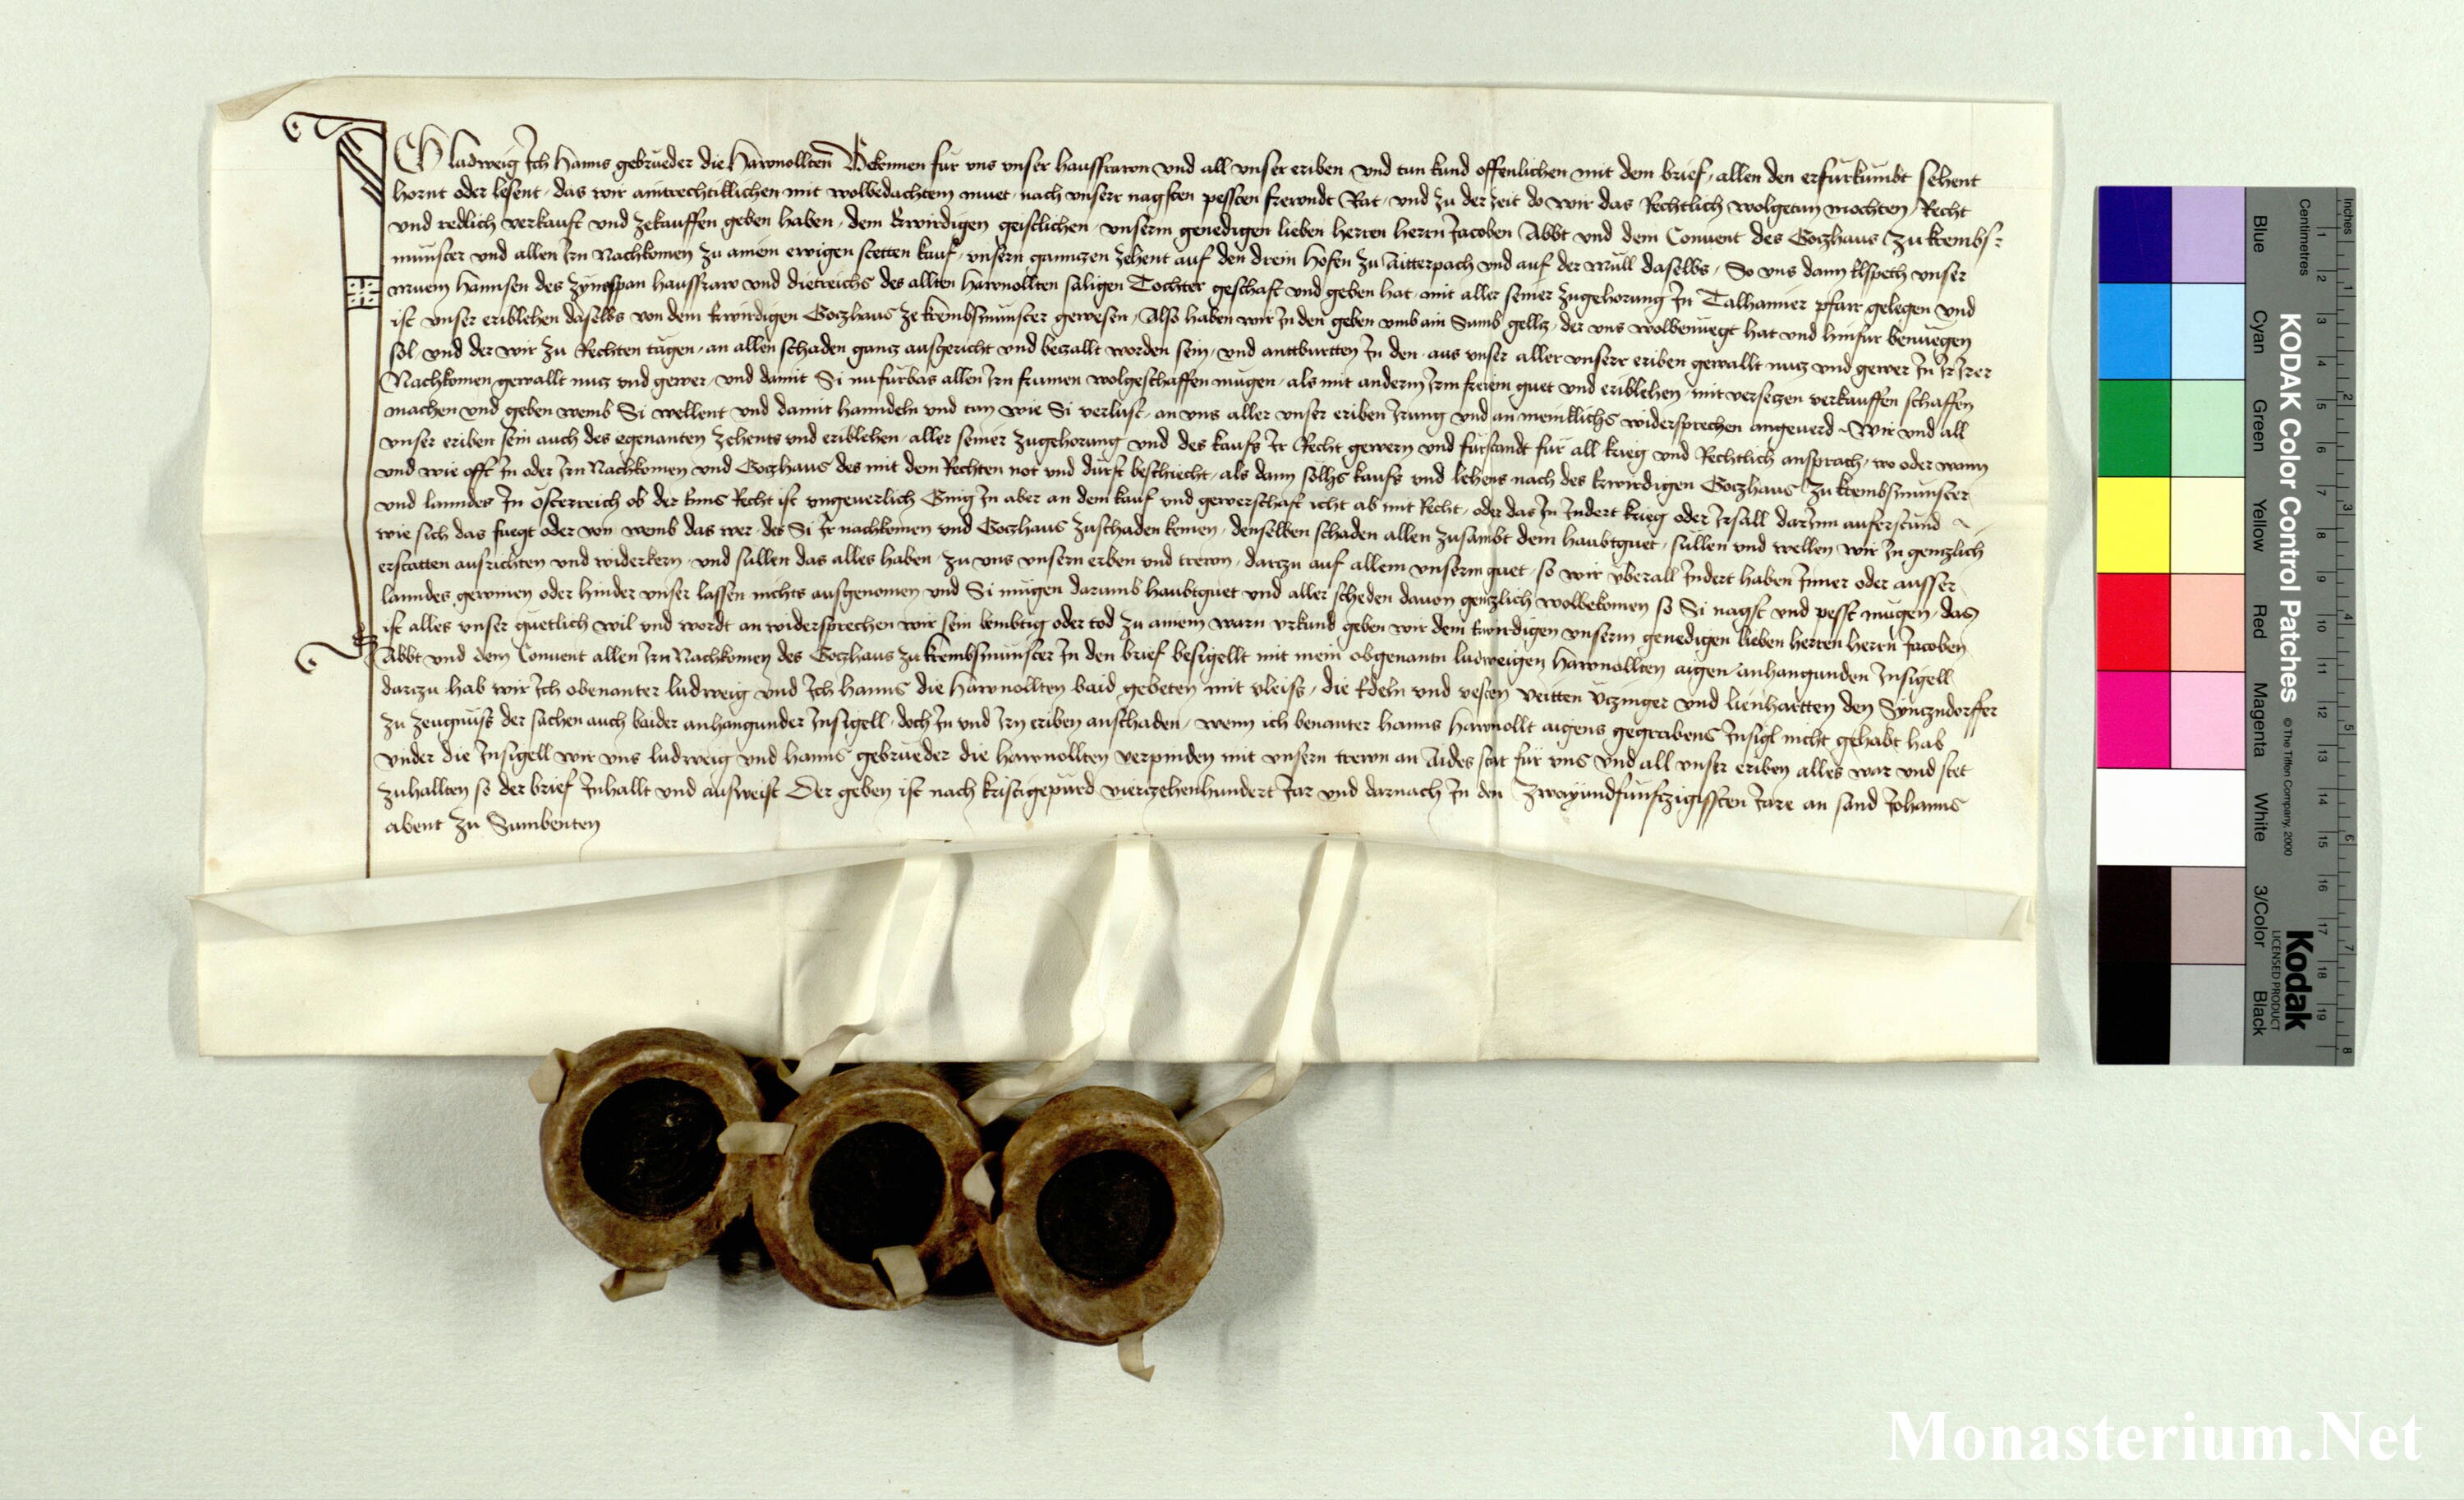 Ich ludweig Ich Hanns gebrueder die Hawnollten Bekennen für vns vnser hausfrawn vnd all vnser eriben vnd tun kund offenlichen mit dem brief allen den er fürkumbt sehent
hornt oder lesent das wir aintrechtiklichen mit wolbedachtem muet nach vnserr nagsten pessten frewndt Rat vnd zu der zeit do wir das Rechtlich wolgetun mochten Recht
vnd redlich verkauft vnd zekauffen geben haben dem Erwirdigen geistlichen vnserm genedigen lieben herren herrn Jacoben Abbt vnd dem Conuent des Gotzhaus zu krembs-
münster vnd allen Irn Nachkomen zu ainem ewigen stetten kauf vnsern ganntzen zehent auf den drein Höfen zu Aitterpach vnd auf der Müll daselbs So vns dann Elspeth vnser
muem Hannsen des zynsspan hausfraw vnd dietreichs des allten hawnollten säligen Tochter geschaft vnd geben hat mit aller seiner zugehorung In Talhaimer pfarr gelegen vnd
ist vnser eriblehen daselbs von dem Erwirdigen Gotzhaus ze krembsmünster gewesen Also haben wir In den geben vmb ain Sumb gelltz der vns wolbenuegt hat vnd hinfur benuegen
sol vnd der wir zu Rechten tägen an allen schaden gantz ausgericht vnd beczallt worden sein vnd anttburtten In den aus vnser aller vnserr eriben gewallt nutz vnd gewer In Ir Irer
Nachkomen gewallt nutz vnd gewer vnd damit Si nu fürbas allen Irn frumen wolgeschaffen mügen als mit anderm Irm freiem guet vnd eriblehen mit versetzen verkauffen schaffen
machen vnd geben wemb Si wellent vnd damit hanndeln vnd tun wie Si verlust an vns aller vnser eriben Irrung vnd an meniklichs widersprechen angeuerd Wir vnd all
vnser eriben sein auch des egenanten zehents vnd eriblehen aller seiner zugehorung vnd des kaufs Ir Recht gewern vnd fürstandt für all krieg vnd Rechtlich ansprach wo oder wann
vnd wie offt In oder Irn Nachkomen vnd Gotzhaus des mit dem Rechten not vnd dürft beschiecht als dann sölhs kaufs vnd lehens nach des Erwirdigen Gotzhaus zu krembsmünster
vnd lanndes In Österreich ob der Enns Recht ist vngeuerlich Gieng In aber an dem kauf vnd gewerschaft icht ab mit Recht oder das In Indert krieg oder Irsall darInn auferstünd
wie sich das fuegt oder von wemb das wer des Si Ir nachkomen vnd Gotzhaus zuschaden kemen denselben schaden allen zusambt dem haubtguet süllen vnd wellen wir In gentzlich
erstatten ausrichten vnd widerkern vnd süllen das alles haben zu vns vnsern erben vnd trewn darczu auf allem vnserm guet so wir vberall Indert haben Inner oder ausser
lanndes gewinen oder hinder vnser lassen nichts ausgenomen vnd Si mügen darumb haubtguet vnd aller scheden dauon gentzlich wolbekomen so Si nagst vnd pesst mügen das
ist alles vnser guetlich wil vnd wordt an widersprechen wir sein lembtig oder tod zu ainem warn vrkund geben wir dem Erwirdigen vnserm genedigen lieben herren herrn Jacoben
Abbt vnd dem Conuent allen Irn Nachkomen des Gotzhaus zu krembsmünster In den brief besigellt mit mein obgenantn ludweigen Hawnollten aigen anhangunden Insigell
darczu hab wir Ich obenanter ludweig vnd Ich hanns die hawnollten baid gebeten mit vleiss die Edeln vnd vesten veitten Vtzinger vnd lienhartten den Syntzndorffer
zu zeugnüss der sachen auch baider anhangunder Insigell doch In vnd Irn eriben anschaden wenn ich benanter hanns hawnollt aigens gegrabens Insigl nicht gehabt hab
vnder die Insigell wir vns ludweig vnd hanns gebrueder die hawnollten verpinden mit vnsern trewn an Aides stat für vns vnd all vnser eriben alles war vnd stet
zuhallten so der brief Inhallt vnd ausweist Der geben ist nach kristi gepurd vierzehenhundert Jar vnd darnach In den zwayundfunftzigissten Jare an sand Johanns
abent zu Sunbenten
Inches
Centimetres
Blue
Cyan
Green
Yellow
Red
Magenta
White
3/Color
Black
KODAK Color Control Patches
© The Tiffen Company, 2000
Kodak
LICENSED PRODUCT
1 2 3 4 5 6 7 8 9 10 11 12 13 14 15 16 17 18 19
1 2 3 4 5 6 7 8
Monasterium.Net